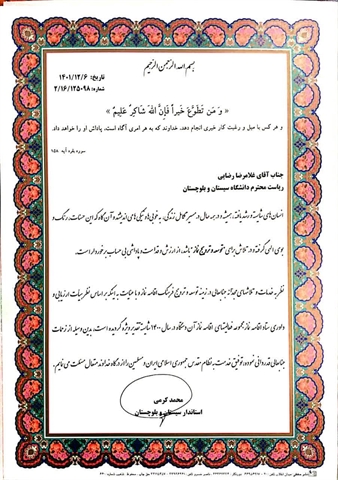 بسم الله الرحمن الرحیم
تاریخ: ۱۴۰۱/۱۲/۶
شماره: ۲/۱۶/۱۲۵۰۹۸
« وَ مَن تَطَوَّعَ خَیراً فَإِنَّ اللهَ شاکِرٌ عَلیمٌ »
و هر کس با میل و رغبت کار خیری انجام دهد، خداوند که به هر امری آگاه است، پاداش او را خواهد داد.
سوره بقره آیه ۱۵۸
جناب آقای غلامرضا رضایی
ریاست محترم دانشگاه سیستان و بلوچستان
انسان های شایسته و رشد یافته، همیشه و در همه حال در مسیر تکامل زندگی، به خوبی و نیکی های اندیشند و آن گاه که این حسنات، رنگ و
بوی الهی گرفته و در تلاش برای توسعه و ترویج نماز باشد، از ارزش و قداست و پاداشی بی حساب برخوردار است.
نظر به خدمات و تلاشهای مجدانه جنابعالی در زمینه توسعه و ترویج فرهنگ اقامه نماز و با عنایت به اینکه بر اساس نظر هیأت ارزیابی و
داوری ستاد اقامه نماز مجموعه فعالیتهای اقامه نماز آن دستگاه در سال ۱۴۰۰ شایسته تقدیر ویژه گردیده است، بدین وسیله از زحمات
جنابعالی قدردانی نموده، توفیق خدمت به نظام مقدس جمهوری اسلامی ایران و مسلمین را از درگاه خداوند متعال مسئلت می نمایم.
محمد کرمی
استاندار سیستان و بلوچستان